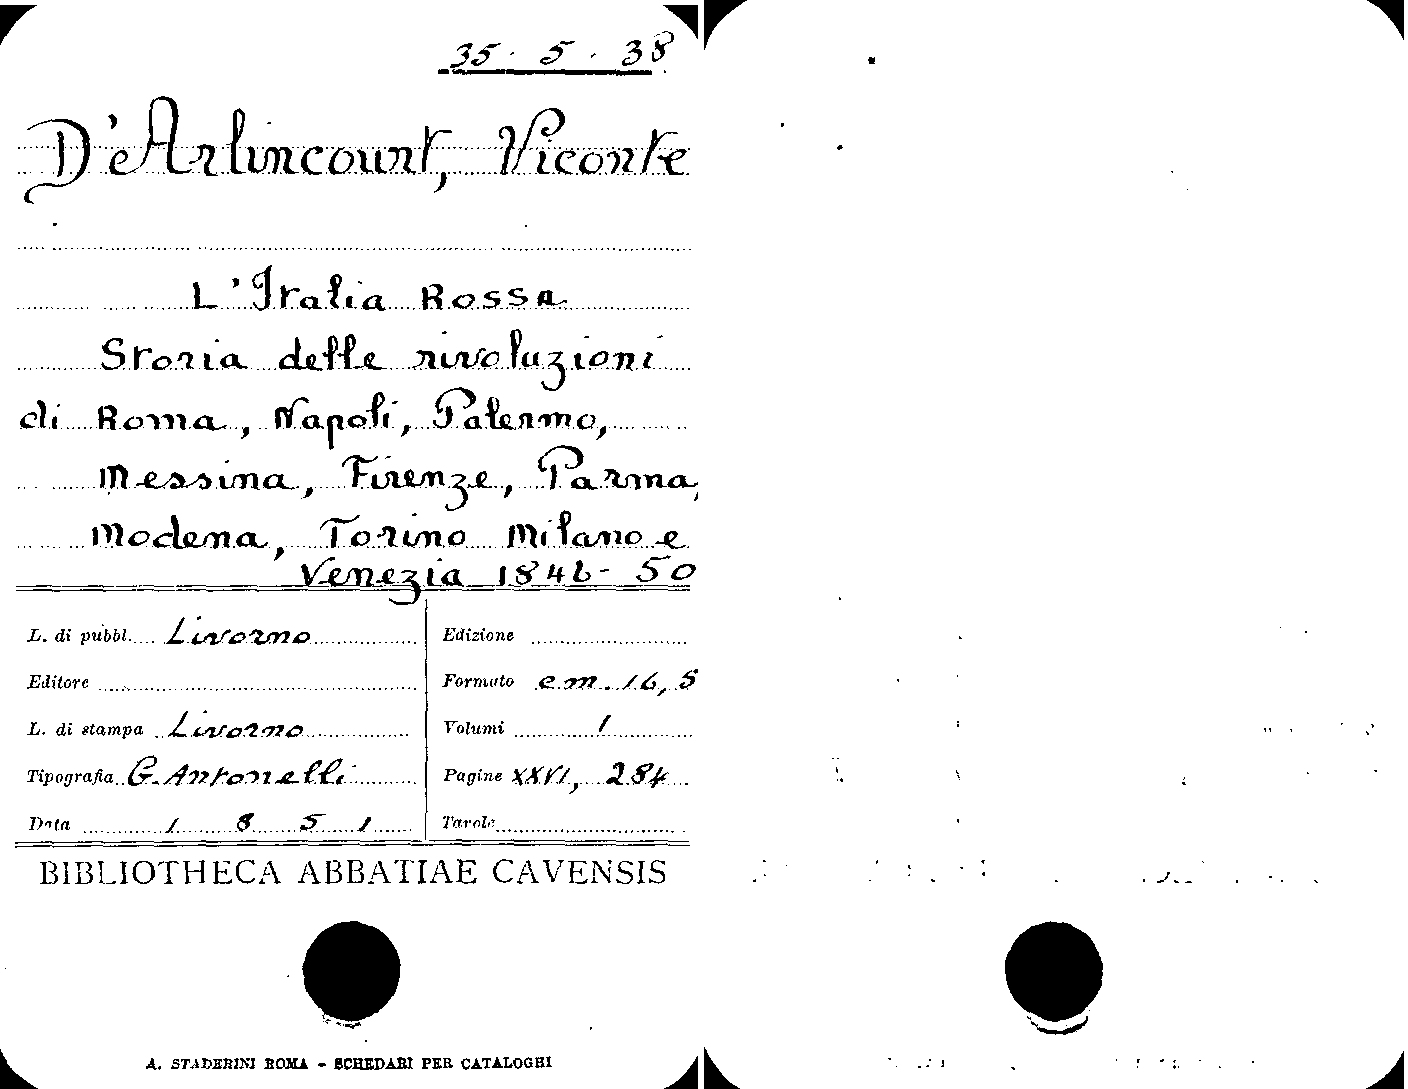 35 · 5 · 38
D'Arlincourt, Viconte
L'Italia Rossa
Storia delle rivoluzioni
di Roma, Napoli, Palermo,
Messina, Firenze, Parma,
Modena, Torino Milano e
Venezia 1846-50
L. di pubbl. Livorno
Edizione
Editore
Formato cm. 16,5
L. di stampa Livorno
Volumi 1
Tipografia G. Antonelli
Pagine XXVI, 284
Data 1851
Tavole
BIBLIOTHECA ABBATIAE CAVENSIS
A. STADERINI ROMA - SCHEDARI PER CATALOGHI